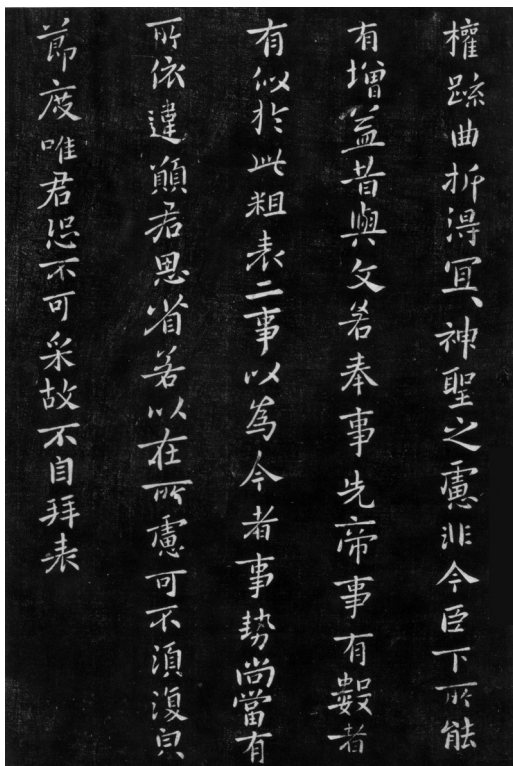 權踈曲折得冥神聖之慮非今臣下所能
有增益昔與文若奉事先帝事有數者
有似於此粗表二事以為今者事勢尚當有
所依違願君思省若以在所慮可不須復皃
節度唯君恐不可采故不自拜表